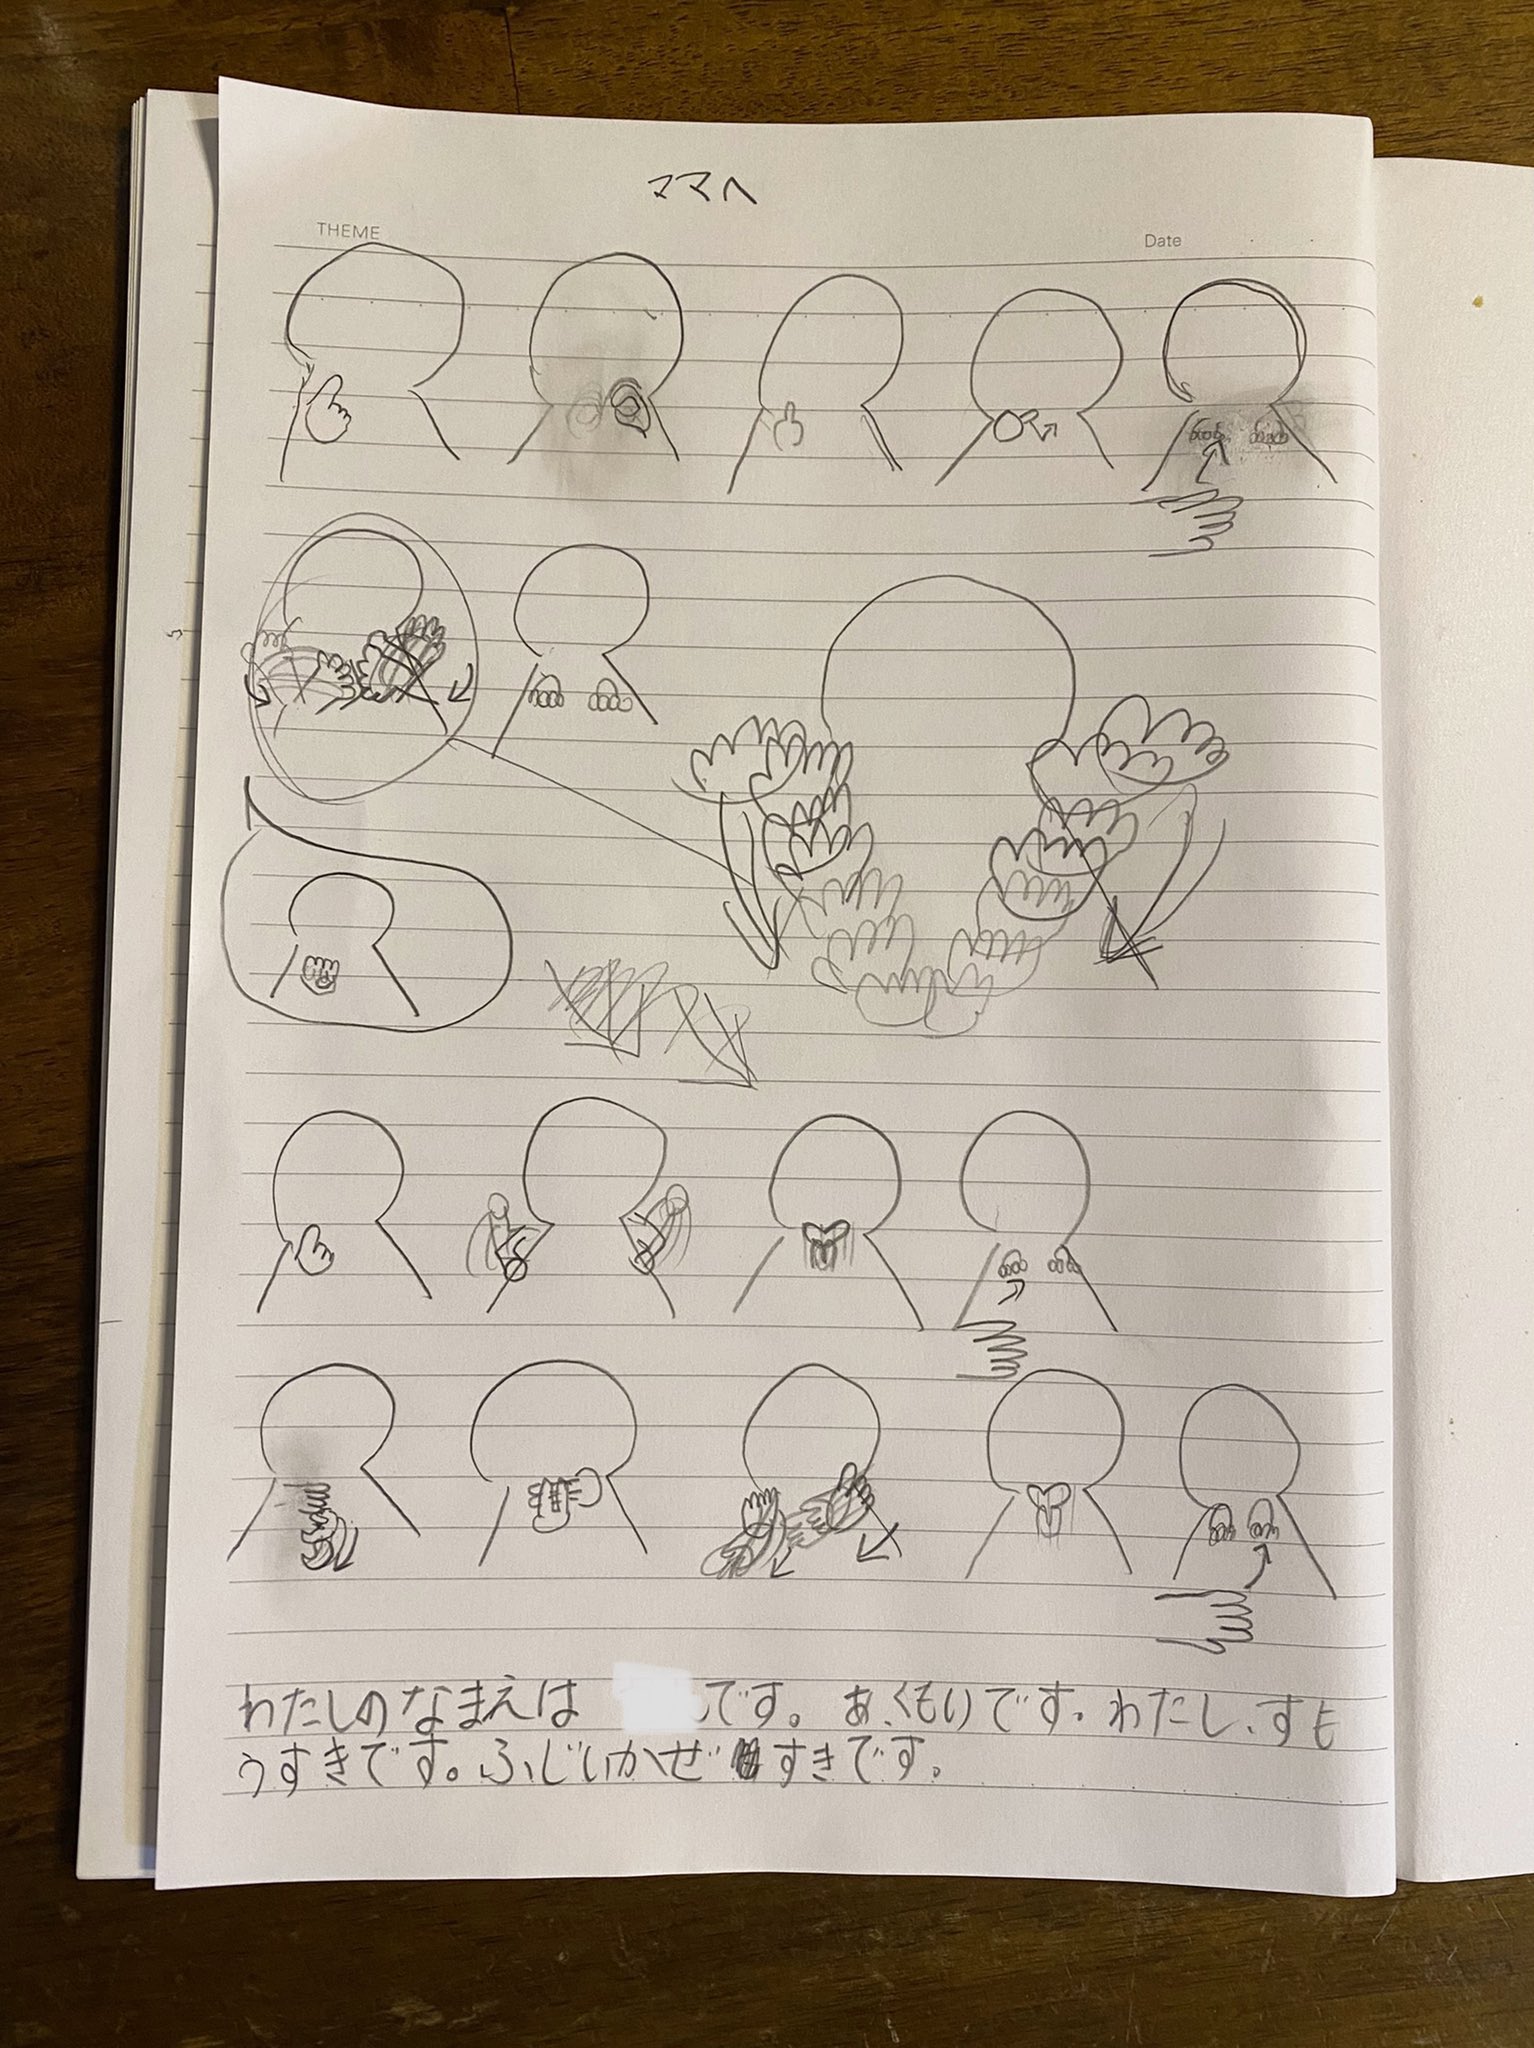 ママへ
THEME
Date
わたしのなまえは です。あ、くもりです。わたし、すも
うすきです。ふじいかぜ すきです。